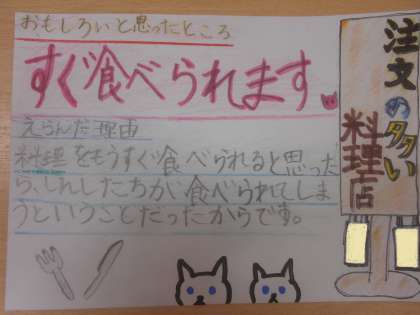 おもしろいと思ったところ
すぐ食べられます
えらんだ理由
料理をもうすぐ食べられると思った
ら、しんしたちが食べられてしま
うということだったからです。
注文の多い
料理店